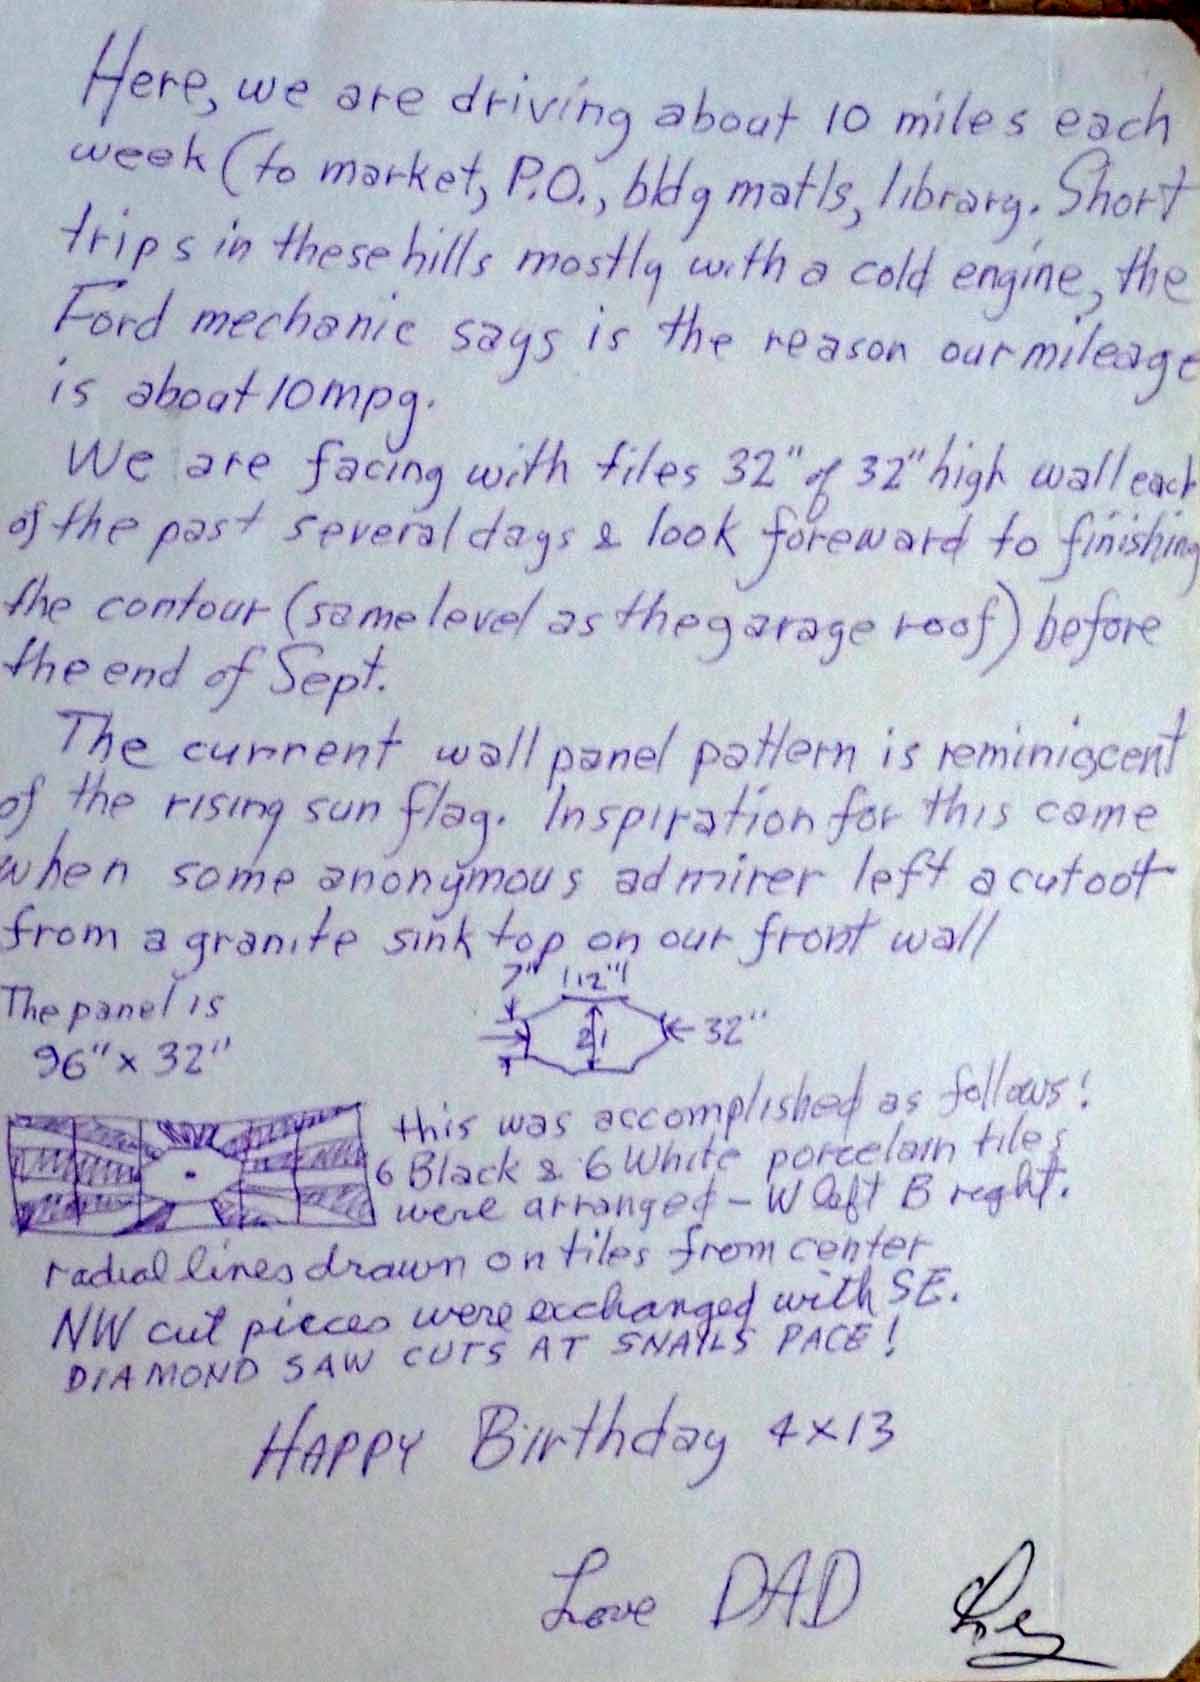 Here, we are driving about 10 miles each
week (to market, P.O., bldg matls, library. Short
trips in these hills mostly with a cold engine, the
Ford mechanic says is the reason our mileage
is about 10 mpg.
We are facing with tiles 32" of 32" high wall each
of the past several days & look foreward to finishing
the contour (same level as the garage roof) before
the end of Sept.
The current wall panel pattern is reminiscent
of the rising sun flag. Inspiration for this came
when some anonymous admirer left a cutoot
from a granite sink top on our front wall
7" 12"
The panel is
21 32"
96" x 32"
this was accomplished as follows!
6 Black & 6 White porcelain tiles
were arranged - W left B reght.
radial lines drawn on tiles from center
NW cut pieces were exchanged with SE.
DIAMOND SAW CUTS AT SNAILS PACE!
HAPPY Birthday 4x13
Love DAD